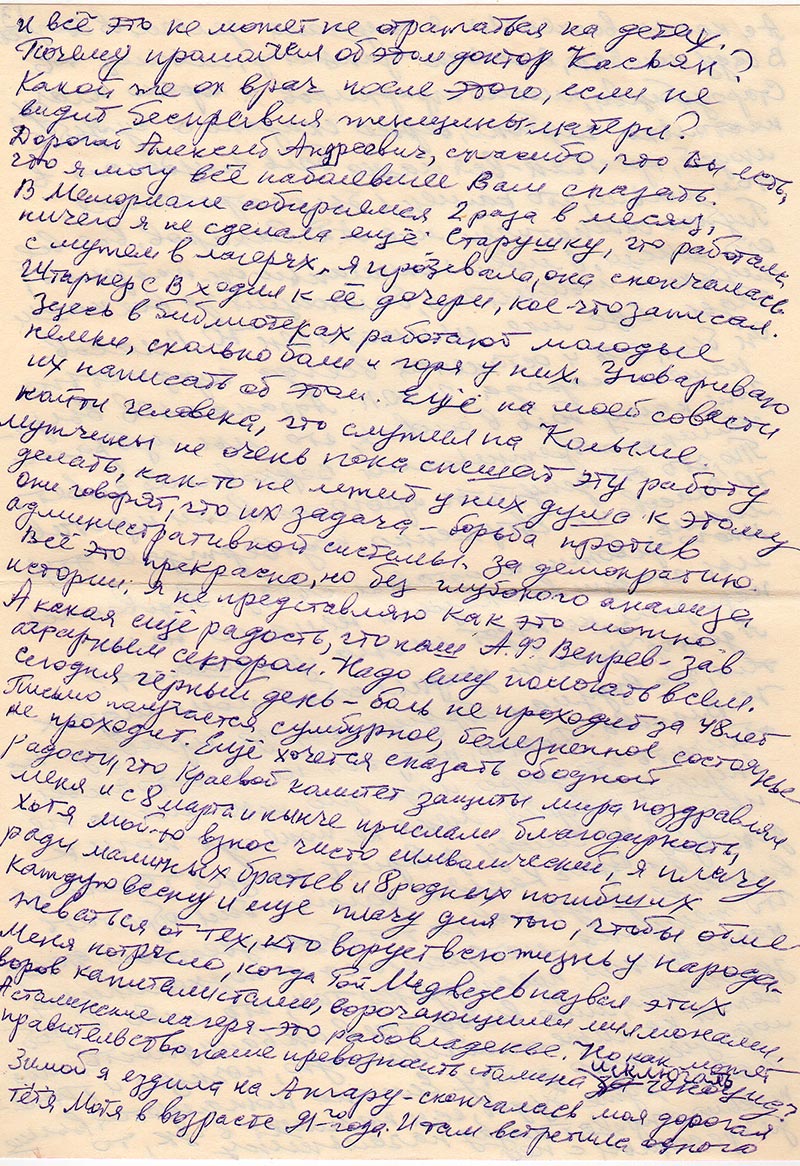 и всё это не может не отражаться на детях.
Почему промолчал об этом доктор Касьян?
Какой же он врач после этого, если не
видит бесправия женщины-матери?
Дорогой Алексей Андреевич, спасибо, что Вы есть,
что я могу всё наболевшее Вам сказать.
В Мемориале собираемся 2 раза в месяц,
ничего я не сделала ещё. Старушку, что работала
с мужем в лагерях, я прозевала, она скончалась.
Штаркер С В ходил к её дочери, кое-что записал.
Здесь в библиотеках работают молодые
немки, сколько боли и горя у них. Уговариваю
их написать об этом. Ещё на моей совести
найти человека, что служил на Колыме.
Мужчины не очень пока спешат эту работу
делать, как-то не лежит у них душа к этому
они говорят, что их задача – борьба против
административной системы. За демократию.
Всё это прекрасно, но без глубокого анализа
истории. Я не представляю как это можно
А какая ещё радость, что наш А.Ф Вепрев – зав
аграрным сектором. Надо ему помогать всем.
Сегодня чёрный день – боль не проходит за 48 лет
Письмо получается сумбурное, болезненное состоянье
не проходит. Ещё хочется сказать об одной
радости, что Краевой комитет защиты мира поздравлял
меня и с 8 марта и нынче прислали благодарность,
хотя мой-то взнос чисто символический, я плачу
ради малижных братьев и 8 родных погибших
каждую весну и ещё плачу для того, чтобы отме
жеваться от тех, кто ворует всю жизнь у народа.
Меня потрясло, когда Рой Медведев назвал этих
воров капиталистами, ворочающими миллионами.
А сталинские лагеря – это рабовладенье. Но как может
правительство наше превозносить сталина исключать геноцид?
Зимой я ездила на Ангару – скончалась моя дорогая
тётя Мотя в возрасте 91-го года. И там встретила одного